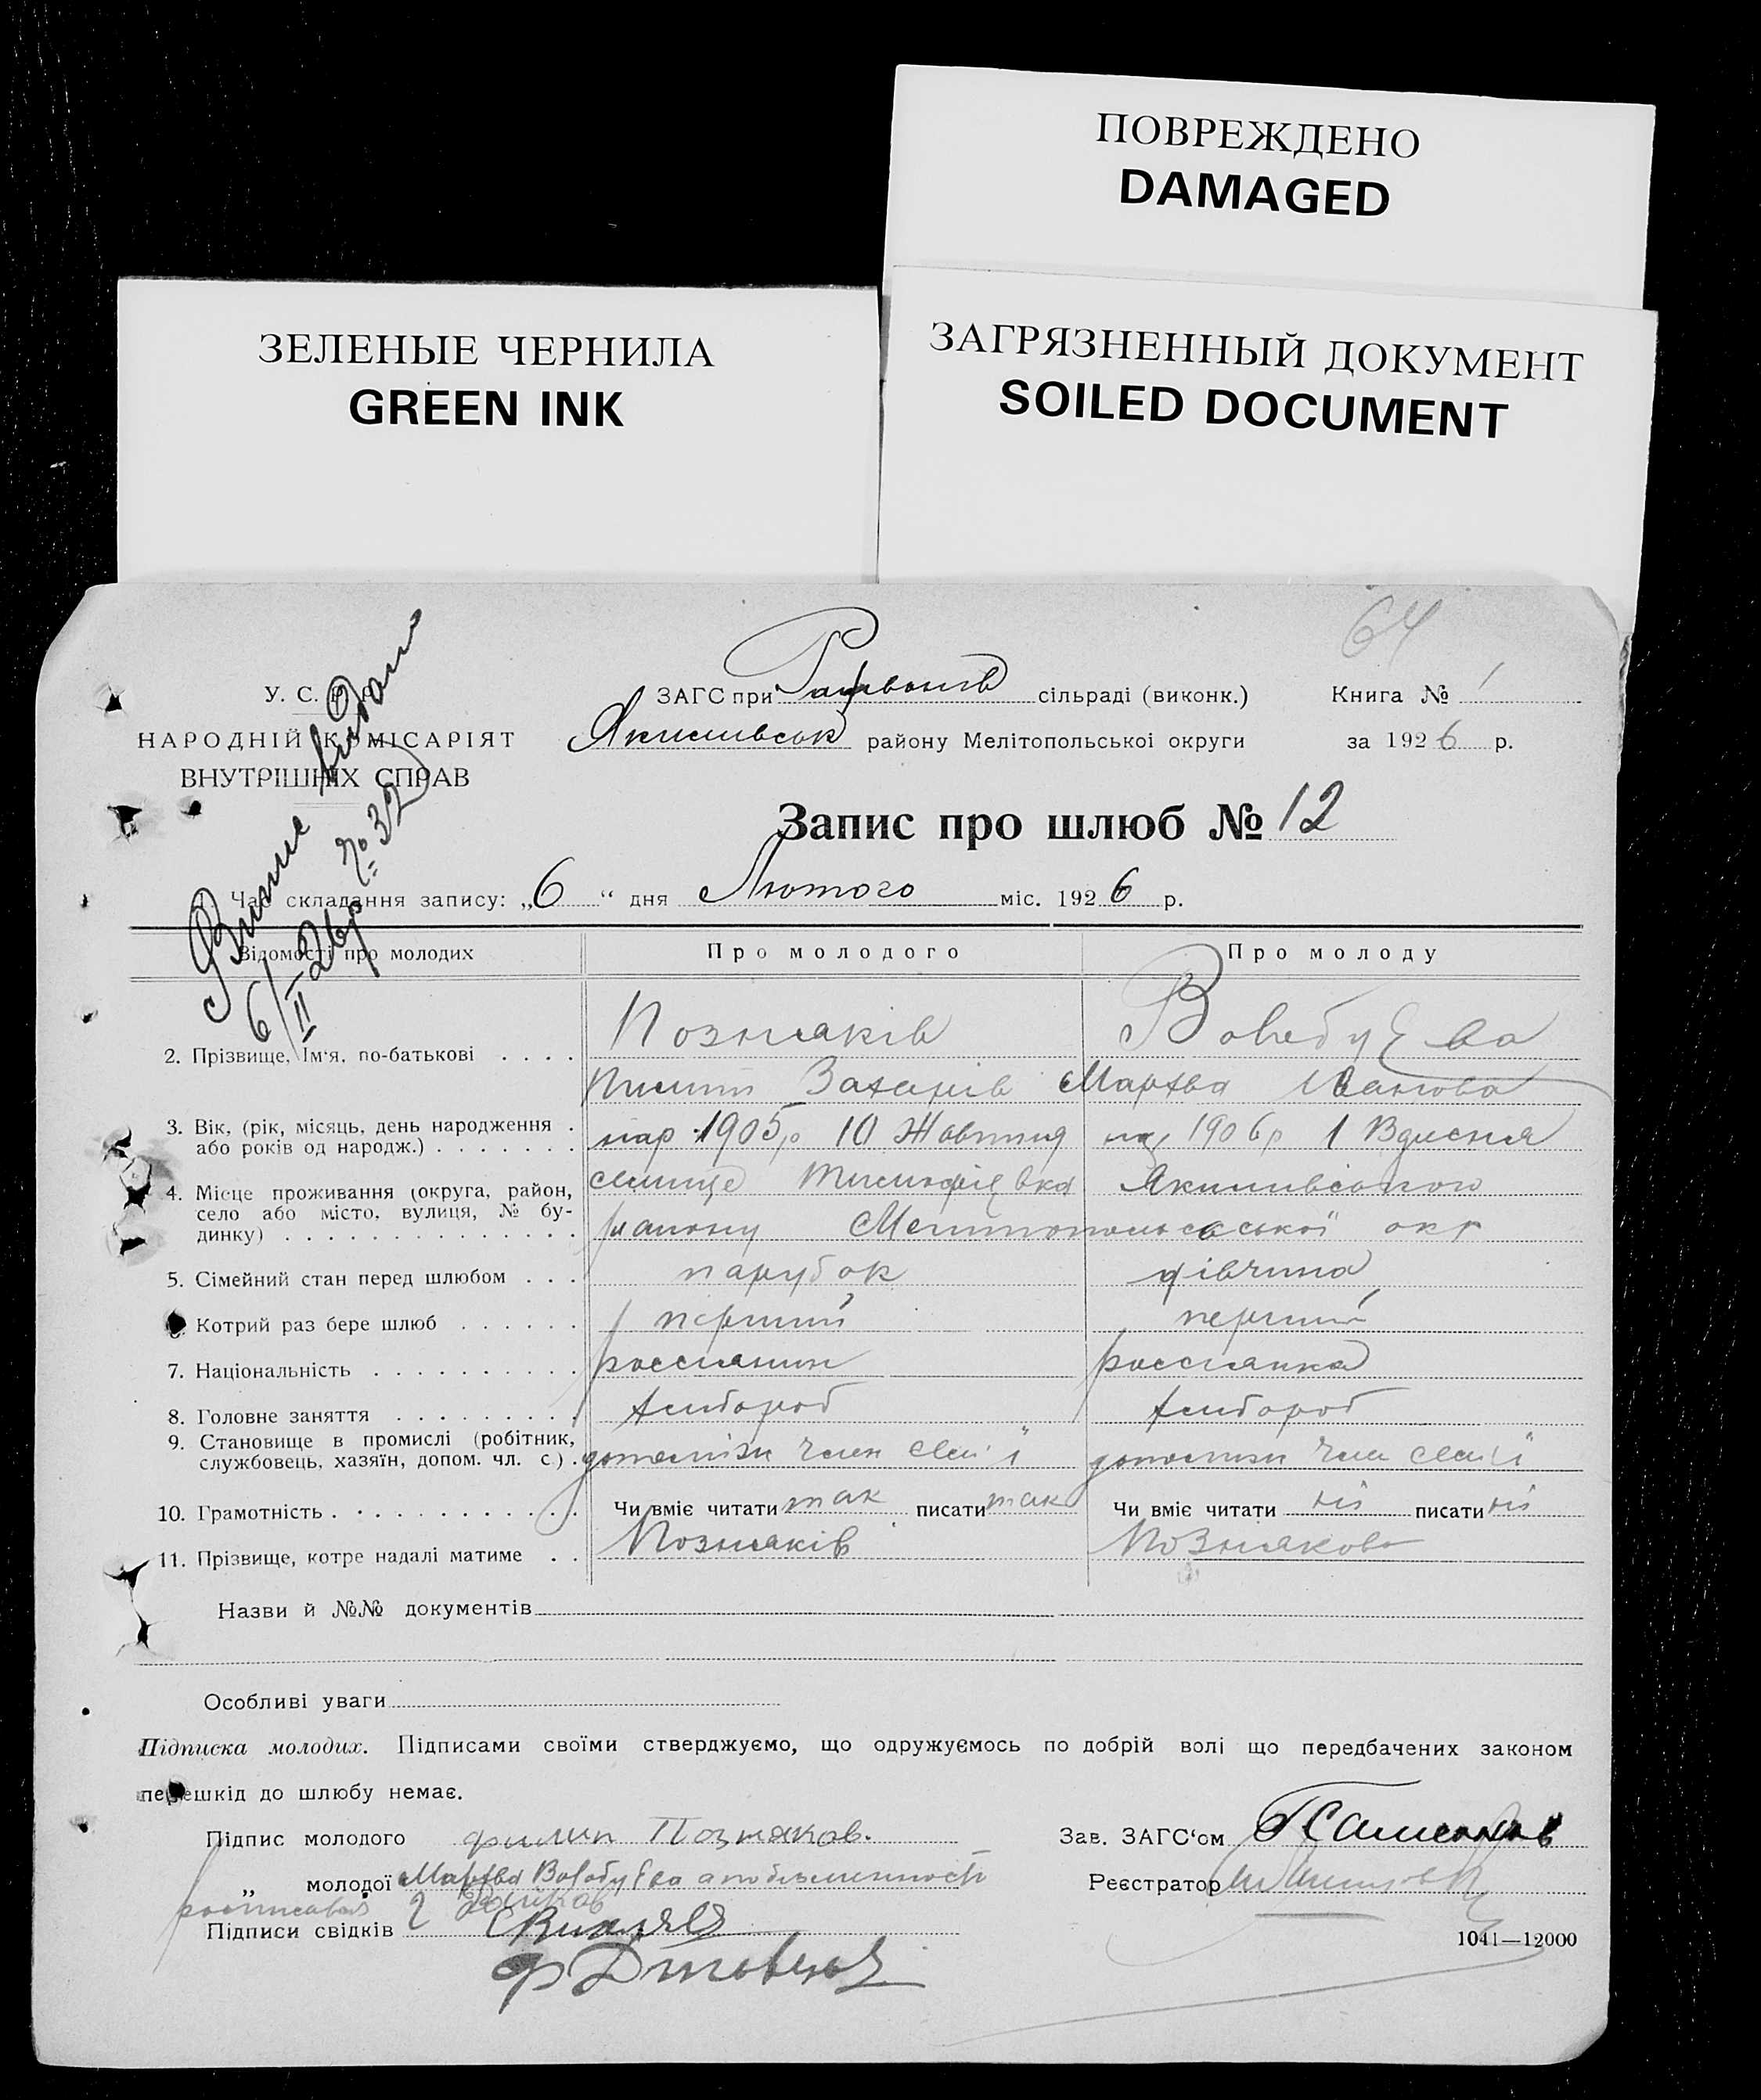 ПОВРЕЖДЕНО
DAMAGED
ЗЕЛЕНЫЕ ЧЕРНИЛА
GREEN INK
ЗАГРЯЗНЕННЫЙ ДОКУМЕНТ
SOILED DOCUMENT
64
У. С.
НАРОДНІЙ КОМІСАРІЯТ
ВНУТРІШНІХ СПРАВ
видана
№ 32
6/II 26р
ЗАГС при сільраді (виконк.)
Книга № 1
Якимівськ району Мелітопольської округи
за 1926 р.
Запис про шлюб № 12
Час складання запису: „6“ дня Лютого міс. 1926 р.
Відомості про молодих
Про молодого
Про молоду
2. Прізвище, Ім'я, по-батькові . . . .
Позняків
Захарів
Марфа Іванова
3. Вік, (рік, місяць, день народження .
або років од народж.) . . . . . . .
нар 1905р 10 Жовтня
1906р 1 Вдесня
4. Місце проживання (округа, район,
село або місто, вулиця, № бу-
динку) . . . . . . . . . . . . . .
селище Тимофіевка Якимивського
району окр
5. Сімейний стан перед шлюбом . . .
парубок
дівчина
Котрий раз бере шлюб . . . . . .
перший
перший
7. Національність . . . . . . . . . .
россиянин
россиянка
8. Головне заняття . . . . . . . . .
хлибороб
хлибороб
9. Становище в промислі (робітник,
службовець, хазяїн, допом. чл. с.) .
член семї
член семї
10. Грамотність . . . . . . . . . . .
Чи вміє читати так писати так
Чи вміє читати ні писати ні
11. Прізвище, котре надалі матиме . .
Позняків
Познякова
Назви й №№ документів
Особливі уваги
Підписка молодих. Підписами своїми стверджуємо, що одружуємось по добрій волі що передбачених законом
перешкід до шлюбу немає.
Підпис молодого филип Позняков.
Зав. ЗАГС'ом
„ молодої Марфа
Реєстратор
росписався
Підписи свідків
1041—12000